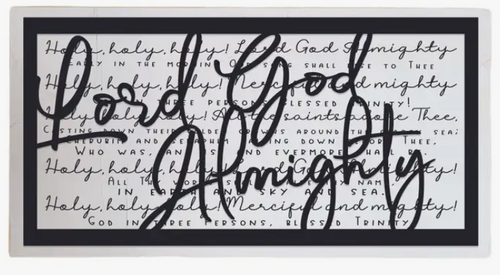 Lord God
Almighty
Holy, holy, holy! Lord God Almighty
EARLY IN THE MORNING SHALL RISE TO THEE
Holy, holy, holy! Merciful and mighty
THREE PERSONS BLESSED TRINITY!
Holy, holy, holy! All the saints adore Thee,
CASTING DOWN THEIR GOLDEN CROWNS AROUND THE SEA;
CHERUBIM AND SERAPHIM FALLING DOWN BEFORE THEE,
WHO WAS, AND IS, AND EVERMORE SHALL BE
Holy, holy, holy! Lord God Almighty
ALL THY WORKS NAME
IN EARTH AND SKY AND SEA.
Holy, holy, holy! Merciful and mighty!
GOD IN THREE PERSONS, BLESSED TRINITY